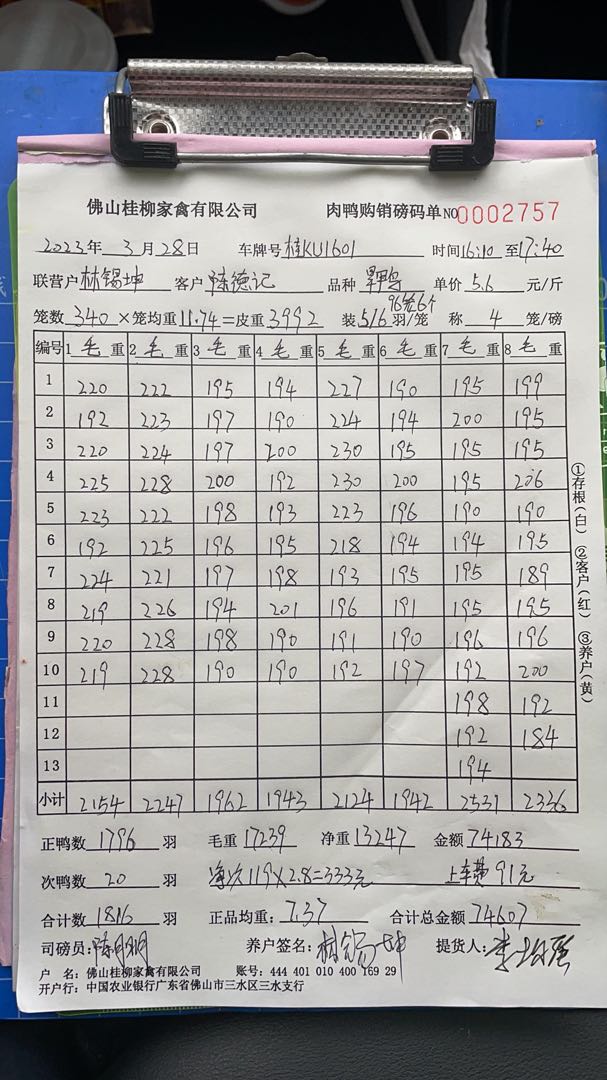 佛山桂柳家禽有限公司 肉鸭购销磅码单 NO 0002757
2023年 3月28日 车牌号 桂KU1601 时间16:10 至17:40
联营户 林锡坤 客户 陈德记 品种 单价 5.6 元/斤
96笼6个
笼数 340 ×笼均重 11.74 =皮重 3992 装 5/6 羽/笼 称 4 笼/磅
编号 1 毛 重 2 毛 重 3 毛 重 4 毛 重 5 毛 重 6 毛 重 7 毛 重 8 毛 重
1 220 222 195 194 227 190 195 199
2 192 223 197 190 224 194 200 195
3 220 224 197 200 230 195 195 195
4 225 228 200 192 230 200 195 206
5 223 222 198 193 223 196 190 190
6 192 225 196 195 218 194 194 195
7 224 221 197 198 193 195 195 189
8 219 226 194 201 196 191 195 195
9 220 228 198 190 191 190 196 196
10 219 228 190 190 192 197 192 200
11 198 192
12 192 184
13 194
小计 2154 2247 1962 1943 2124 1942 2531 2336
①存根(白) ②客户(红) ③养户(黄)
正鸭数 1796 羽 毛重 17239 净重 13247 金额 74183
次鸭数 20 羽 净次119×2.8=333元 上车费91元
合计数 1816 羽 正品均重: 7.37 合计总金额 74607
司磅员: 养户签名: 林锡坤 提货人:
户 名: 佛山桂柳家禽有限公司 账号: 444 401 010 400 169 29
开户行: 中国农业银行广东省佛山市三水区三水支行